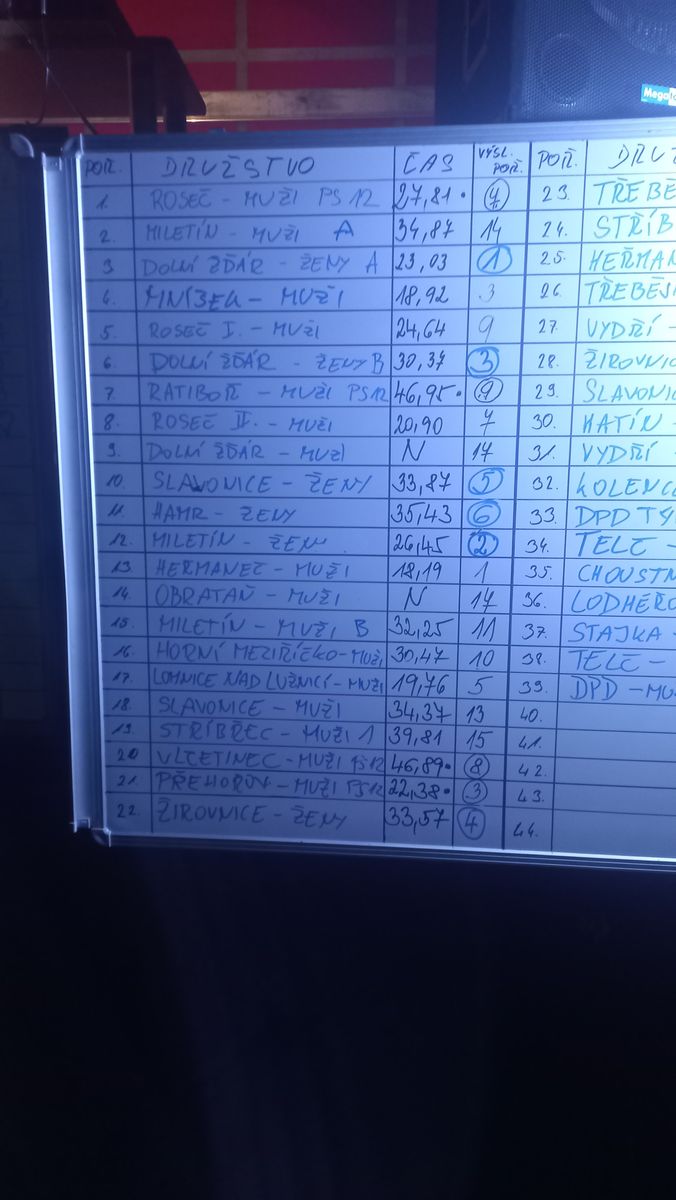 Mega
POŘ. DRUŽSTVO ČAS VÝSL. POŘ. POŘ. DRUŽ
1. ROSEČ - MUŽI PS 12 27,81• 23. TŘEBĚ
2. MILETÍN - MUŽI A 34,87 14 24. STŘÍB
3. DOLNÍ ŽĎÁR - ŽENY A 23,03 1 25. HEŘMAN
4. MNÍŠEK - MUŽI 18,92 3 26. TŘEBĚJI
5. ROSEČ I. - MUŽI 24,64 9 27. VYDŘÍ -
6. DOLNÍ ŽĎÁR - ŽENY B 30,37 3 28. ŽIROVNIC
7. RATIBOŘ - MUŽI PS12 46,95• 9 29. SLAVONIC
8. ROSEČ II. - MUŽI 20,90 7 30. HATÍN -
9. DOLNÍ ŽĎÁR - MUŽI N 17 31. VYDŘÍ -
10. SLAVONICE - ŽENY 33,87 5 32. KOLENC
11. HAMR - ŽENY 35,43 6 33. DPD TÝ
12. MILETÍN - ŽENY 26,45 2 34. TELČ -
13. HEŘMANEČ - MUŽI 18,19 1 35. CHOUSTN
14. OBRATAŇ - MUŽI N 17 36. LODHÉŘO
15. MILETÍN - MUŽI B 32,25 11 37. STAJKA -
16. HORNÍ MEZIŘÍČKO - MUŽI 30,47 10 38. TELČ -
17. LOMNICE NAD LUŽNICÍ - MUŽI 19,76 5 39. DPD - MU
18. SLAVONICE - MUŽI 34,37 13 40.
19. STŘÍBŘEC - MUŽI 1 39,81 15 41.
20. VLČETÍNEC - MUŽI PS12 46,89• 8 42.
21. PŘEHOŘOV - MUŽI PS12 22,38• 3 43.
22. ŽIROVNICE - ŽENY 33,57 4 44.